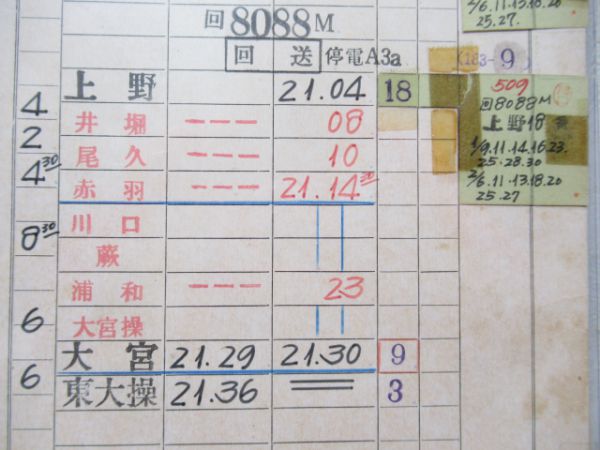 回8088M
回送 停電A3a (183-9)
上野 21.04 18
4
井堀 --- 08
2
尾久 --- 10
4 30
赤羽 --- 21.14 30
川口
8 30
蕨
浦和 --- 23
6
大宮操
大宮 21.29 21.30 9
6
東大操 21.36 3
2/6.11.13.18.20
25.27.
509
回8088M
上野18番
1/9.11.14.16.23.
25.28.30
2/6.11.13.18.20
25.27